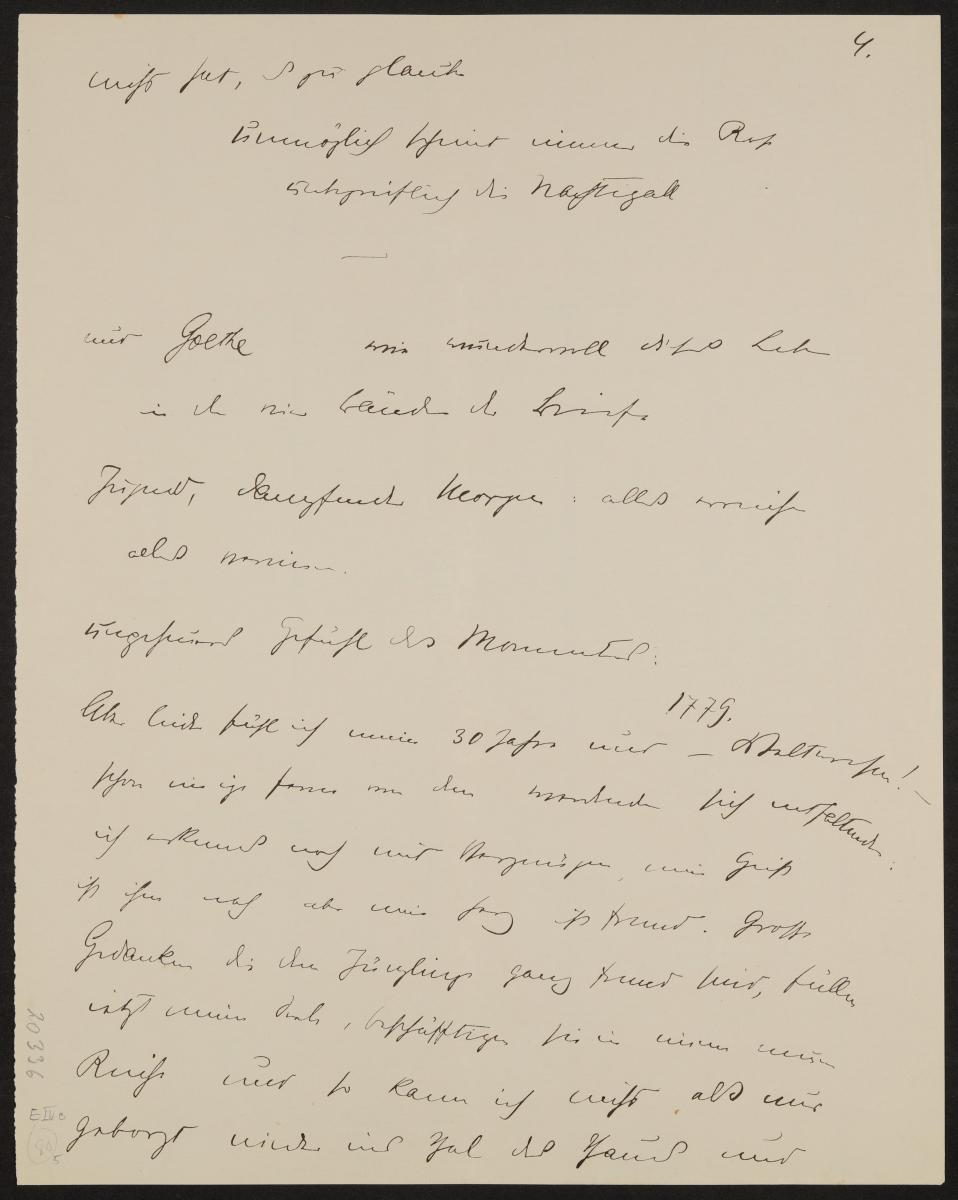 4.
nicht hat, zu glauben
Unmöglich scheint immer die Rose
unbegreiflich die Nachtigall
und Goethe wie wundervoll dieses Leben
in den vier Bänden der Briefe
Jugend, dampfender Morgen: alles
alles
ungeheures Gefühl des Momentes:
1779.
Aber leider fühl ich meine 30 Jahre und – Weltwesen! –
schon einige Ferne von dem werdenden sich entfaltenden:
ich erkenns noch mit Vergnügen, mein Geist
ist ihm nah aber mein Herz ist fremd. Grosse
Gedanken die dem Jünglinge ganz fremd sind, füllen
jetzt meine Seele, beschäfftigen sie in einem neuen
Reiche und so kann ich nicht als nur
geborgt nieder ins Thal des Thaus und
20336
E IV
5